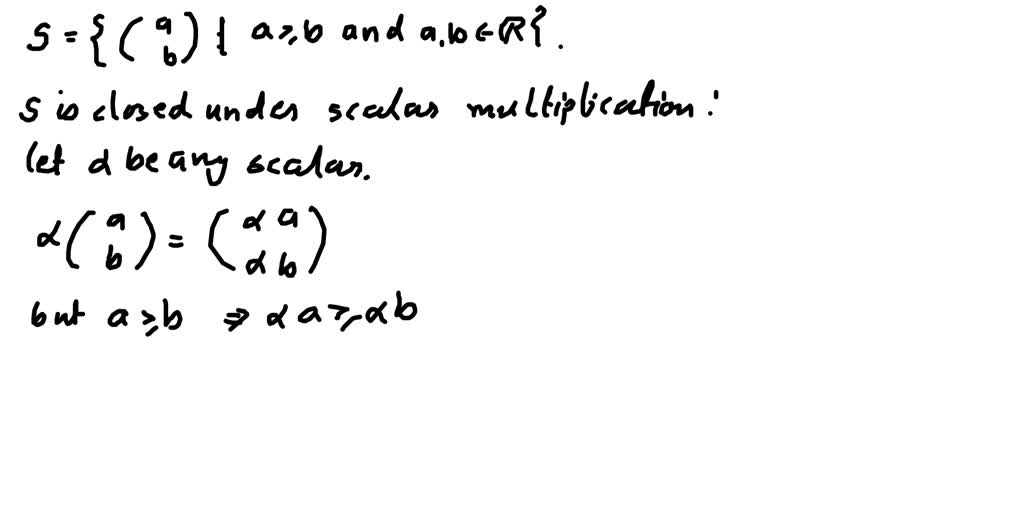 S = { ( a b ) | a ≥ b and a, b ∈ ℝ }.
S is closed under scalar multiplication:
let α be any scalar.
α ( a b ) = ( αa αb )
but a ≥ b ⇒ αa ≥ αb